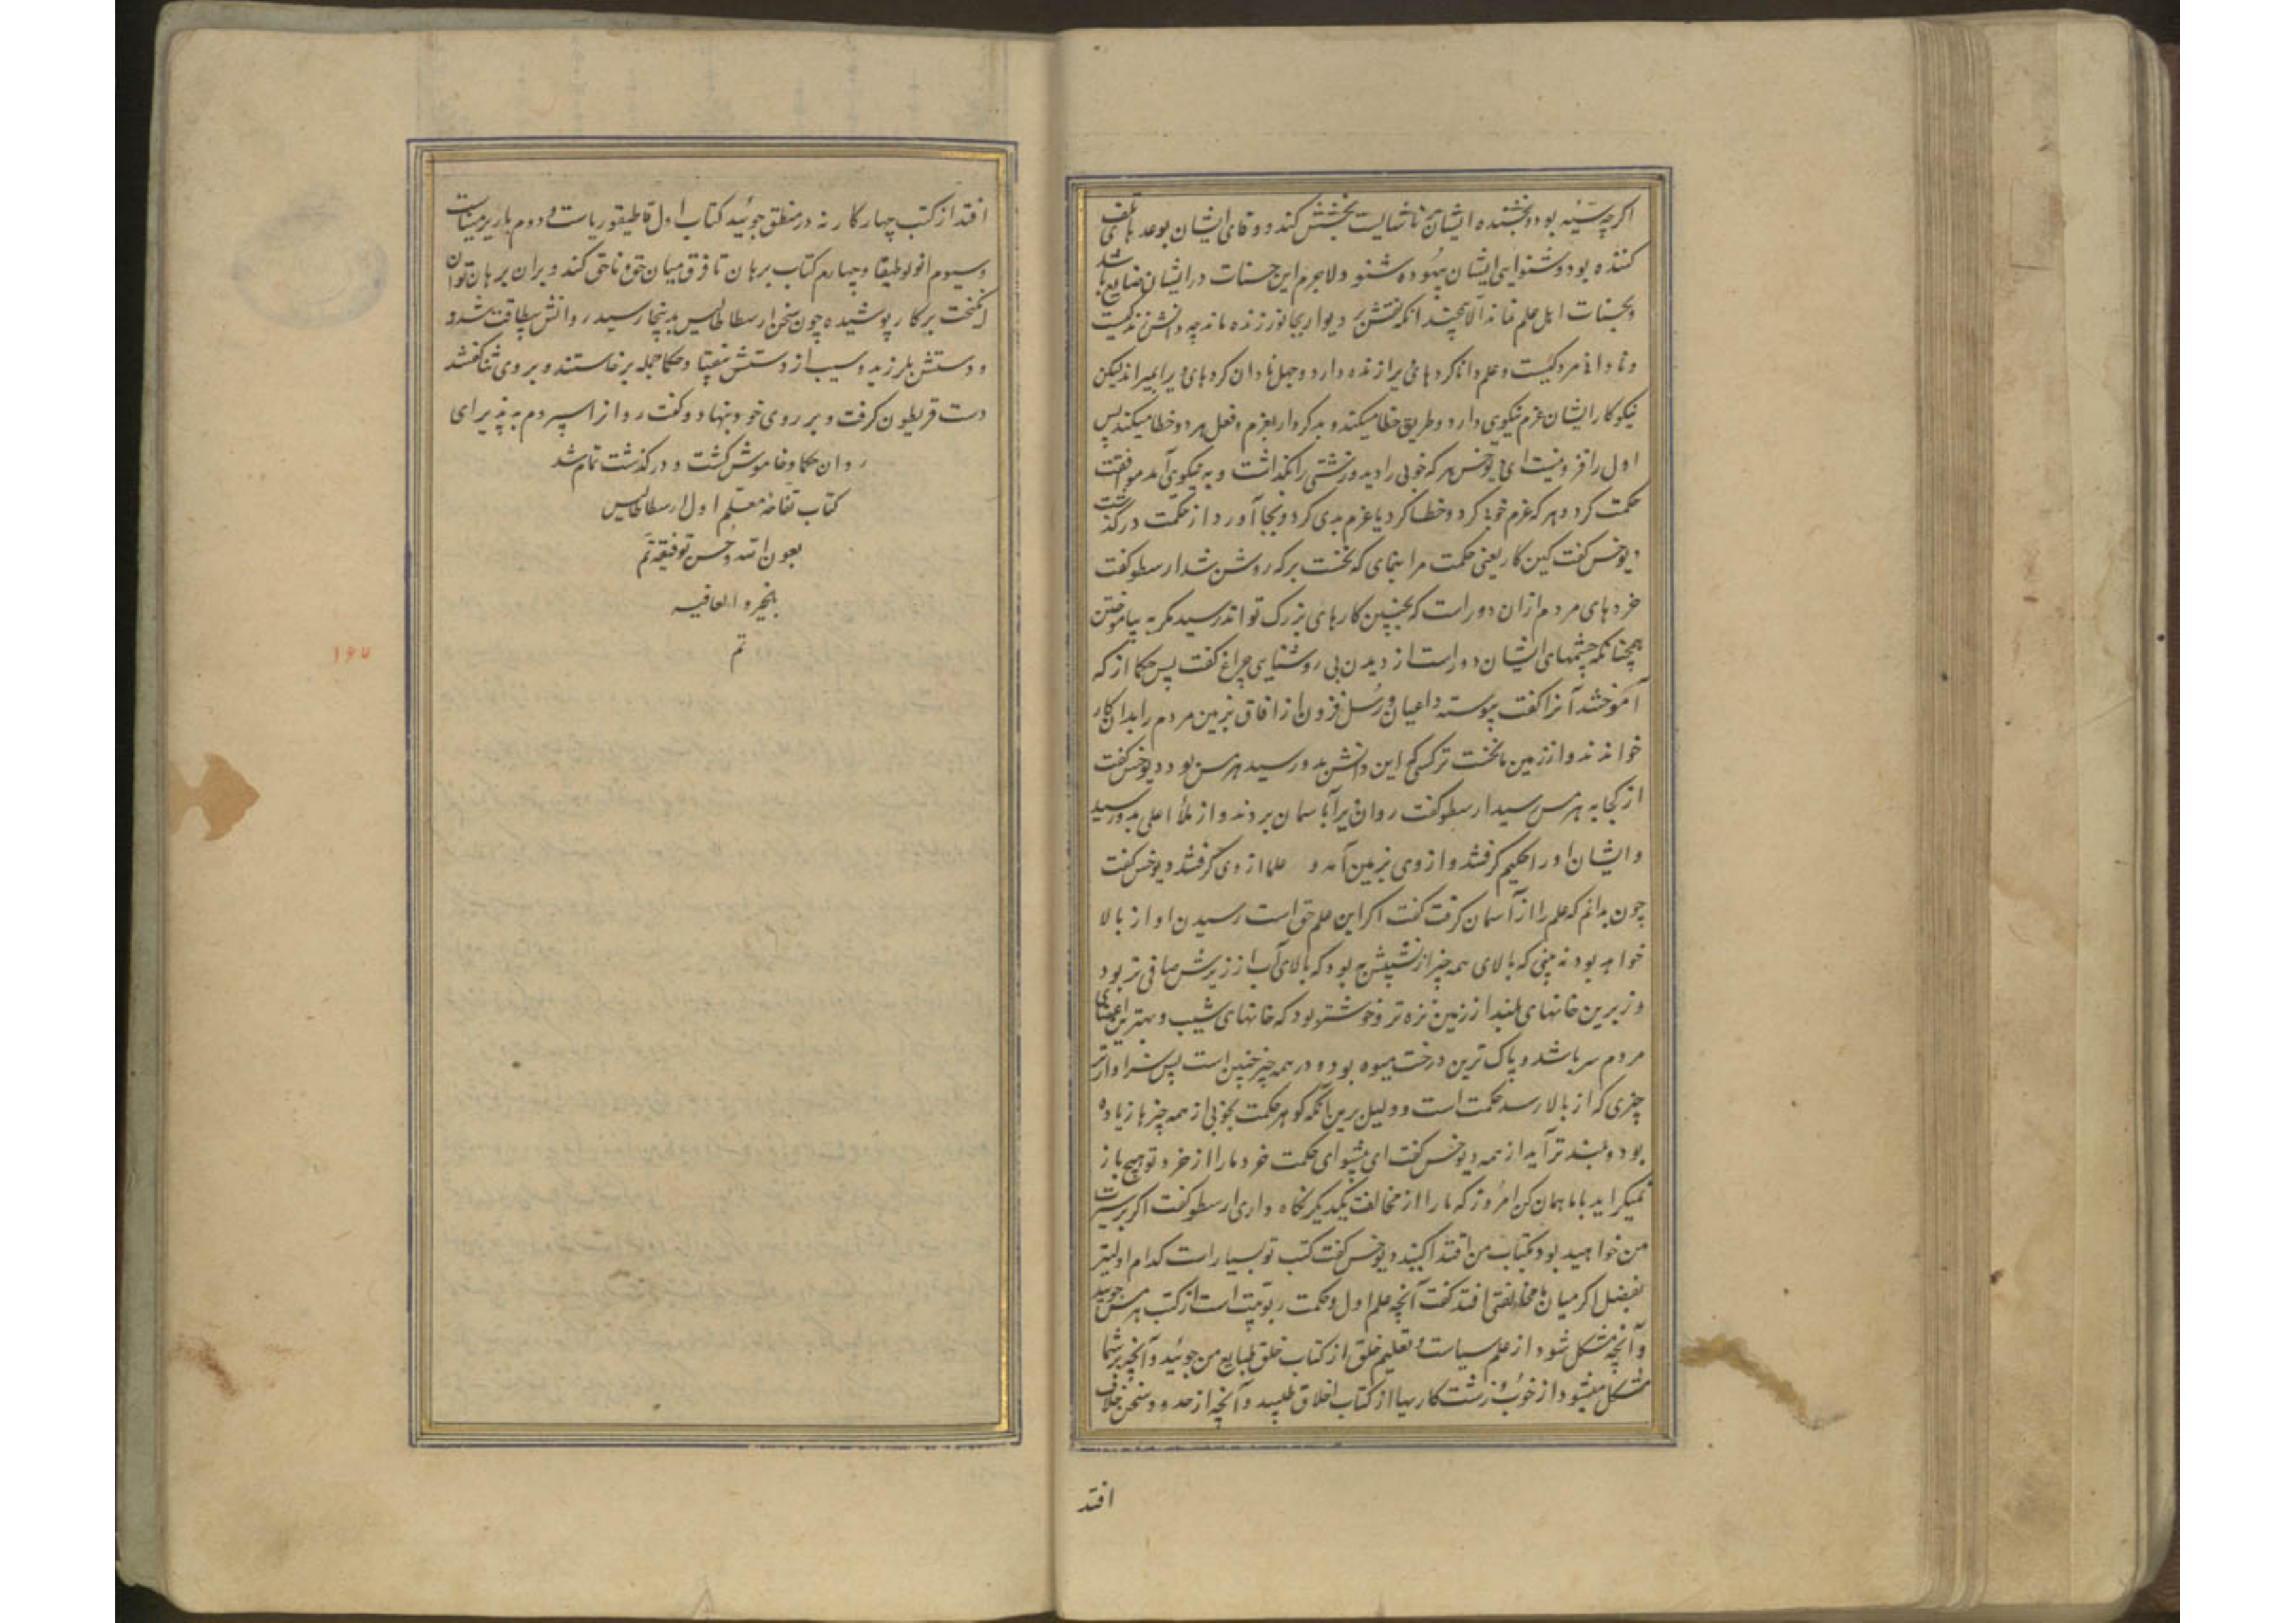 اگرچه سَیّئه بود و بخشنده ایشان ناشایست بخشش کند و وفای ایشان بوعدهای تلف
کننده بود و شنوایی ایشان بیهوده شنود لاجرم این حسنات در ایشان ضایع باشد
و بحسنات اهل علم نماند الا همچندانکه نقش دیوار بجانور زنده ماند چه دانش زندگیست
و نادانی مردگیست و علم دانا کردهای ویرا زنده دارد و جهل نادان کردهای ویرا بمیراند لیکن
نیکوکار ایشان عزم نیکوی دارد و طریق خطا میکند و بدکردار بعزم و فعل هر دو خطا میکند پس
اول را فزونیست ای دیوخس هر که خوبی را دید و زشتی را نگذاشت و به نیکوی آمد موافقت
حکمت کرد و هر که عزم خوبی کرد و خطا کرد یا عزم بدی کرد و بجا آورد از حکمت درگذشت
دیوخس گفت کین کار یعنی حکمت مرا بنمای که نخست بر که روشن شد ارسطو گفت
خردهای مردم ازان دور است که بچنین کارهای بزرگ تواند رسید مگر به بیاموختن
همچنانکه چشمهای ایشان دور است از دیدن بی روشنایی چراغ گفت پس حکما از که
آموختند آنرا گفت پیوسته داعیان و رُسل قرون از افاق زمین مردم را بدان کار
خواندند و از زمین ما نخست تر کسی که این دانش بدو رسید هرمس بود دیوخس گفت
از کجا به هرمس رسید ارسطو گفت روان ویرا بآسمان بردند و از ملأ اعلی بدو رسید
و ایشان او را حکیم گرفتند و از وی بزمین آمد و علما از وی گرفتند دیوخس گفت
چون بدانم که علم را از آسمان گرفت گفت اگر این علم حق است رسیدن او از بالا
خواهد بود نه بینی که بالای همه چیز از نشیبش به بود که بالای آب از زیرش صافی تر بود
و زبرین خانهای بلند از زمین نزه تر و خوشتر بود که خانهای شیب و بهترین اعضای
مردم سر باشد و پاک ترین درخت میوه بود و در همه چیز چنین است پس سزاوارتر
چیزی که از بالا رسد حکمت است و دلیل برین آنکه گوهر حکمت بخوبی از همه چیزها زیاده
بود و بلند تر آید از همه دیوخس گفت ای پیشوای حکمت خرد ما را از خرد تو هیچ باز
نمیگراید با ما همان کن امروز که ما را از مخالفت یکدیگر نگاه داری ارسطو گفت اگر بر سیرت
من خواهید بود بکتاب من اقتدا کنید دیوخس گفت کتب تو بسیار است کدام اولیتر
بفیصل اگر میان ما مخالفتی افتد گفت آنچه علم اول و حکمت ربوبیت است از کتب هرمس جویید
و آنچه مشکل شود از علم سیاست و تعلیم خلق از کتاب خلق طبایع من جوئید و آنچه بر شما
مشکل میشود از خوب و زشت کارها از کتاب اخلاق طلبید و آنچه از حدود سخن خلاف
افتد
افتد از کتب چهارگانه در منطق جوئید کتاب اول قاطیقوریاست و دوم باریرمینیاست
و سیوم انولوطیقا و چهارم کتاب برهان تا فرق میان حق و ناحق کند و بران برهان توان
انگیخت بر کار پوشیده چون سخن ارسطاطالیس بدینجا رسید روانش بیطاقت شد و
و دستش بلرزید و سیب از دستش بیفتاد و حکما جمله برخاستند و بر وی ثنا گفتند
دست قریطون گرفت و بر روی خود بنهاد و گفت روانرا سپردم به پذیرای
روان حکما و خاموش گشت و درگذشت تمام شد
کتاب تفاحه معلّم اول ارسطاطالیس
بعون الله و حُسن توفیقه تَم
بالخیر و العافیه
تم